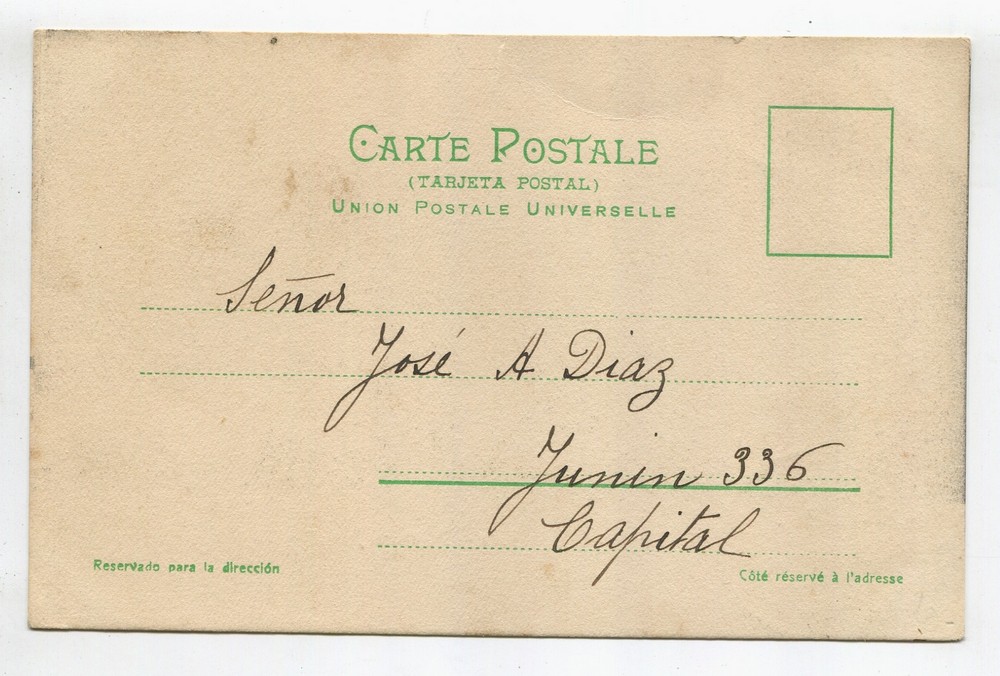 CARTE POSTALE
(TARJETA POSTAL)
UNION POSTALE UNIVERSELLE
Señor
José A Diaz
Junin 336
Capital
Reservado para la dirección
Côté réservé à l'adresse